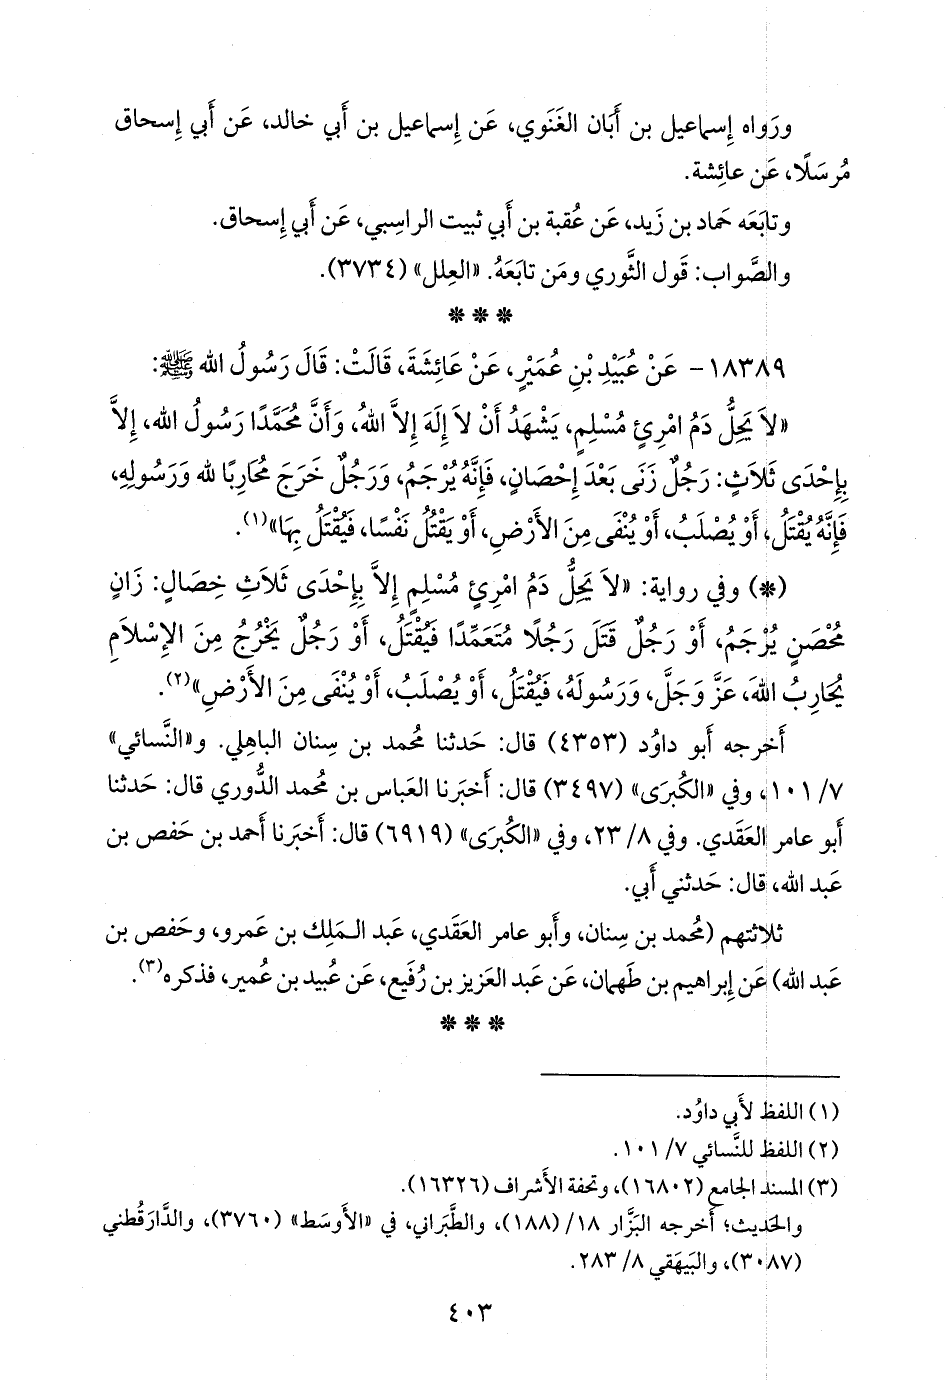 ورَواه إِسماعيل بن أَبَان الغَنَوي، عَن إِسماعيل بن أَبي خالد، عَن أَبي إِسحاق
مُرسَلًا، عَن عائِشة.
وتابَعَه حَماد بن زَيد، عَن عُقبة بن أَبي ثبيت الراسِبي، عَن أَبي إِسحاق.
والصَّواب: قَول الثَّوري ومَن تابَعَهُ. «العِلل» (٣٧٣٤).
* * *
١٨٣٨٩- عَنْ عُبَيْدِ بْنِ عُمَيْرٍ، عَنْ عَائِشَةَ، قَالَتْ: قَالَ رَسُولُ الله ﷺ:
«لاَ يَحِلُّ دَمُ امْرِئٍ مُسْلِمٍ، يَشْهَدُ أَنْ لاَ إِلَهَ إِلاَّ اللهُ، وَأَنَّ مُحَمَّدًا رَسُولُ الله، إِلاَّ
بِإِحْدَى ثَلاَثٍ: رَجُلٌ زَنَى بَعْدَ إِحْصَانٍ، فَإِنَّهُ يُرْجَمُ، وَرَجُلٌ خَرَجَ مُحَارِبًا لله وَرَسُولِهِ،
فَإِنَّهُ يُقْتَلُ، أَوْ يُصْلَبُ، أَوْ يُنْفَى مِنَ الأَرْضِ، أَوْ يَقْتُلُ نَفْسًا، فَيُقْتَلُ بِهَا»(١).
(*) وفي رواية: «لاَ يَحِلُّ دَمُ امْرِئٍ مُسْلِمٍ إِلاَّ بِإِحْدَى ثَلاَثِ خِصَالٍ: زَانٍ
مُحْصَنٍ يُرْجَمُ، أَوْ رَجُلٌ قَتَلَ رَجُلًا مُتَعَمِّدًا فَيُقْتَلُ، أَوْ رَجُلٌ يَخْرُجُ مِنَ الإِسْلاَمِ
يُحَارِبُ اللهَ، عَزَّ وَجَلَّ، وَرَسُولَهُ، فَيُقْتَلُ، أَوْ يُصْلَبُ، أَوْ يُنْفَى مِنَ الأَرْضِ»(٢).
أَخرجه أَبو داوُد (٤٣٥٣) قال: حَدثنا مُحمد بن سِنان الباهِلي. و«النَّسائي»
٧/ ١٠١، وفي «الكُبرَى» (٣٤٩٧) قال: أَخبَرنا العَباس بن مُحمد الدُّوري قال: حَدثنا
أَبو عامر العَقَدي. وفي ٨/ ٢٣، وفي «الكُبرَى» (٦٩١٩) قال: أَخبَرنا أَحمد بن حَفص بن
عَبد الله، قال: حَدثني أَبي.
ثلاثتهم (مُحمد بن سِنان، وأَبو عامر العَقَدي، عَبد الـمَلِك بن عَمرو، وحَفص بن
عَبد الله) عَن إِبراهيم بن طَهمان، عَن عَبد العَزيز بن رُفَيع، عَن عُبيد بن عُمير، فذكره(٣).
* * *
(١) اللفظ لأَبي داوُد.
(٢) اللفظ للنَّسائي ٧/ ١٠١.
(٣) المسند الجامع (١٦٨٠٢)، وتحفة الأَشراف (١٦٣٢٦).
والحَديث؛ أَخرجه البَزَّار ١٨/ (١٨٨)، والطَّبَراني، في «الأَوسَط» (٣٧٦٠)، والدَّارَقُطني
(٣٠٨٧)، والبَيهَقي ٨/ ٢٨٣.
٤٠٣